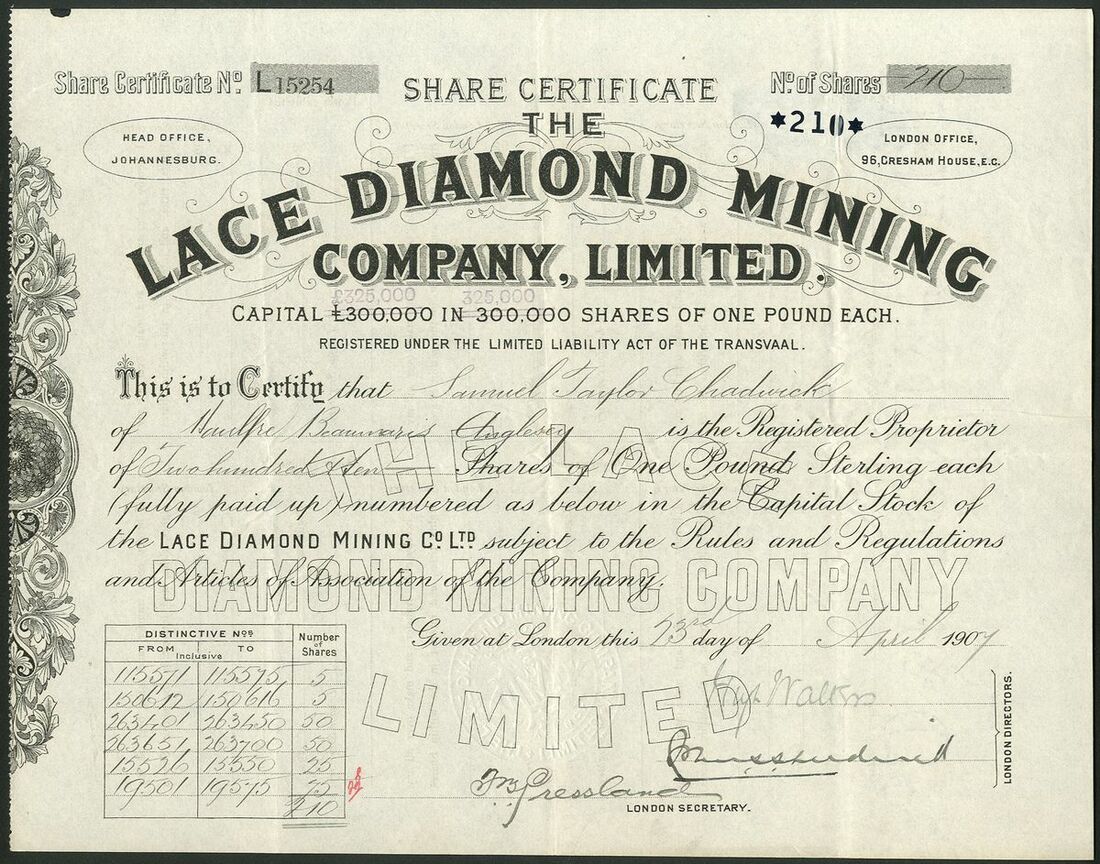 Share Certificate No. L 15254
SHARE CERTIFICATE
No. of Shares 210
*210*
HEAD OFFICE,
JOHANNESBURG.
LONDON OFFICE,
96, CRESHAM HOUSE, E.C.
THE
LACE DIAMOND MINING
COMPANY, LIMITED.
£325,000 325,000
CAPITAL £300,000 IN 300,000 SHARES OF ONE POUND EACH.
REGISTERED UNDER THE LIMITED LIABILITY ACT OF THE TRANSVAAL.
This is to Certify that Samuel Taylor Chadwick
of Haulfre Beaumaris Anglesey is the Registered Proprietor
of Two hundred & ten Shares of One Pound Sterling each
(fully paid up) numbered as below in the Capital Stock of
the LACE DIAMOND MINING Co LTD subject to the Rules and Regulations
and Articles of Association of the Company.
THE LACE
DIAMOND MINING COMPANY
LIMITED
Given at London this 23rd day of April 1907
DISTINCTIVE Nos. Number of Shares
FROM Inclusive TO
115571 115575 5
150612 150616 5
263401 263450 50
263651 263700 50
15526 15550 25
19501 19575 75
210
Walters
Pressland
LONDON SECRETARY.
LONDON DIRECTORS.